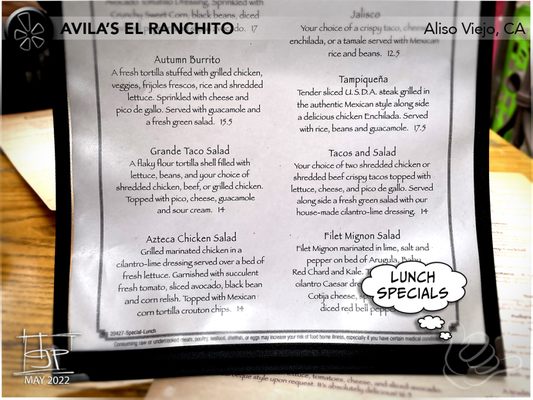 AVILA'S EL RANCHITO
Aliso Viejo, CA
Avocado Tomatillo Dressing. Sprinkled with
Crunchy Sweet Corn, black beans, diced
17
Autumn Burrito
A fresh tortilla stuffed with grilled chicken,
veggies, frijoles frescos, rice and shredded
lettuce. Sprinkled with cheese and
pico de gallo. Served with guacamole and
a fresh green salad. 15.5
Grande Taco Salad
A flaky flour tortilla shell filled with
lettuce, beans, and your choice of
shredded chicken, beef, or grilled chicken.
Topped with pico, cheese, guacamole
and sour cream. 14
Azteca Chicken Salad
Grilled marinated chicken in a
cilantro-lime dressing served over a bed of
fresh lettuce. Garnished with succulent
fresh tomato, sliced avocado, black bean
and corn relish. Topped with Mexican
corn tortilla crouton chips. 14
Jalisco
Your choice of a crispy taco, cheese
enchilada, or a tamale served with Mexican
rice and beans. 12.5
Tampiqueña
Tender sliced U.S.D.A. steak grilled in
the authentic Mexican style along side
a delicious chicken Enchilada. Served
with rice, beans and guacamole. 17.5
Tacos and Salad
Your choice of two shredded chicken or
shredded beef crispy tacos topped with
lettuce, cheese, and pico de gallo. Served
along side a fresh green salad with our
house-made cilantro-lime dressing. 14
Filet Mignon Salad
Filet Mignon marinated in lime, salt and
pepper on bed of Arugula, Baby
Red Chard and Kale.
cilantro Caesar
Cotija cheese,
diced red bell
LUNCH
SPECIALS
20427-Special-Lunch
Consuming raw or undercooked meats, poultry, seafood, shellfish, or eggs may increase your risk of food borne illness, especially if you have certain medical conditions
style upon request. It's absolutely delicious!
MAY 2022